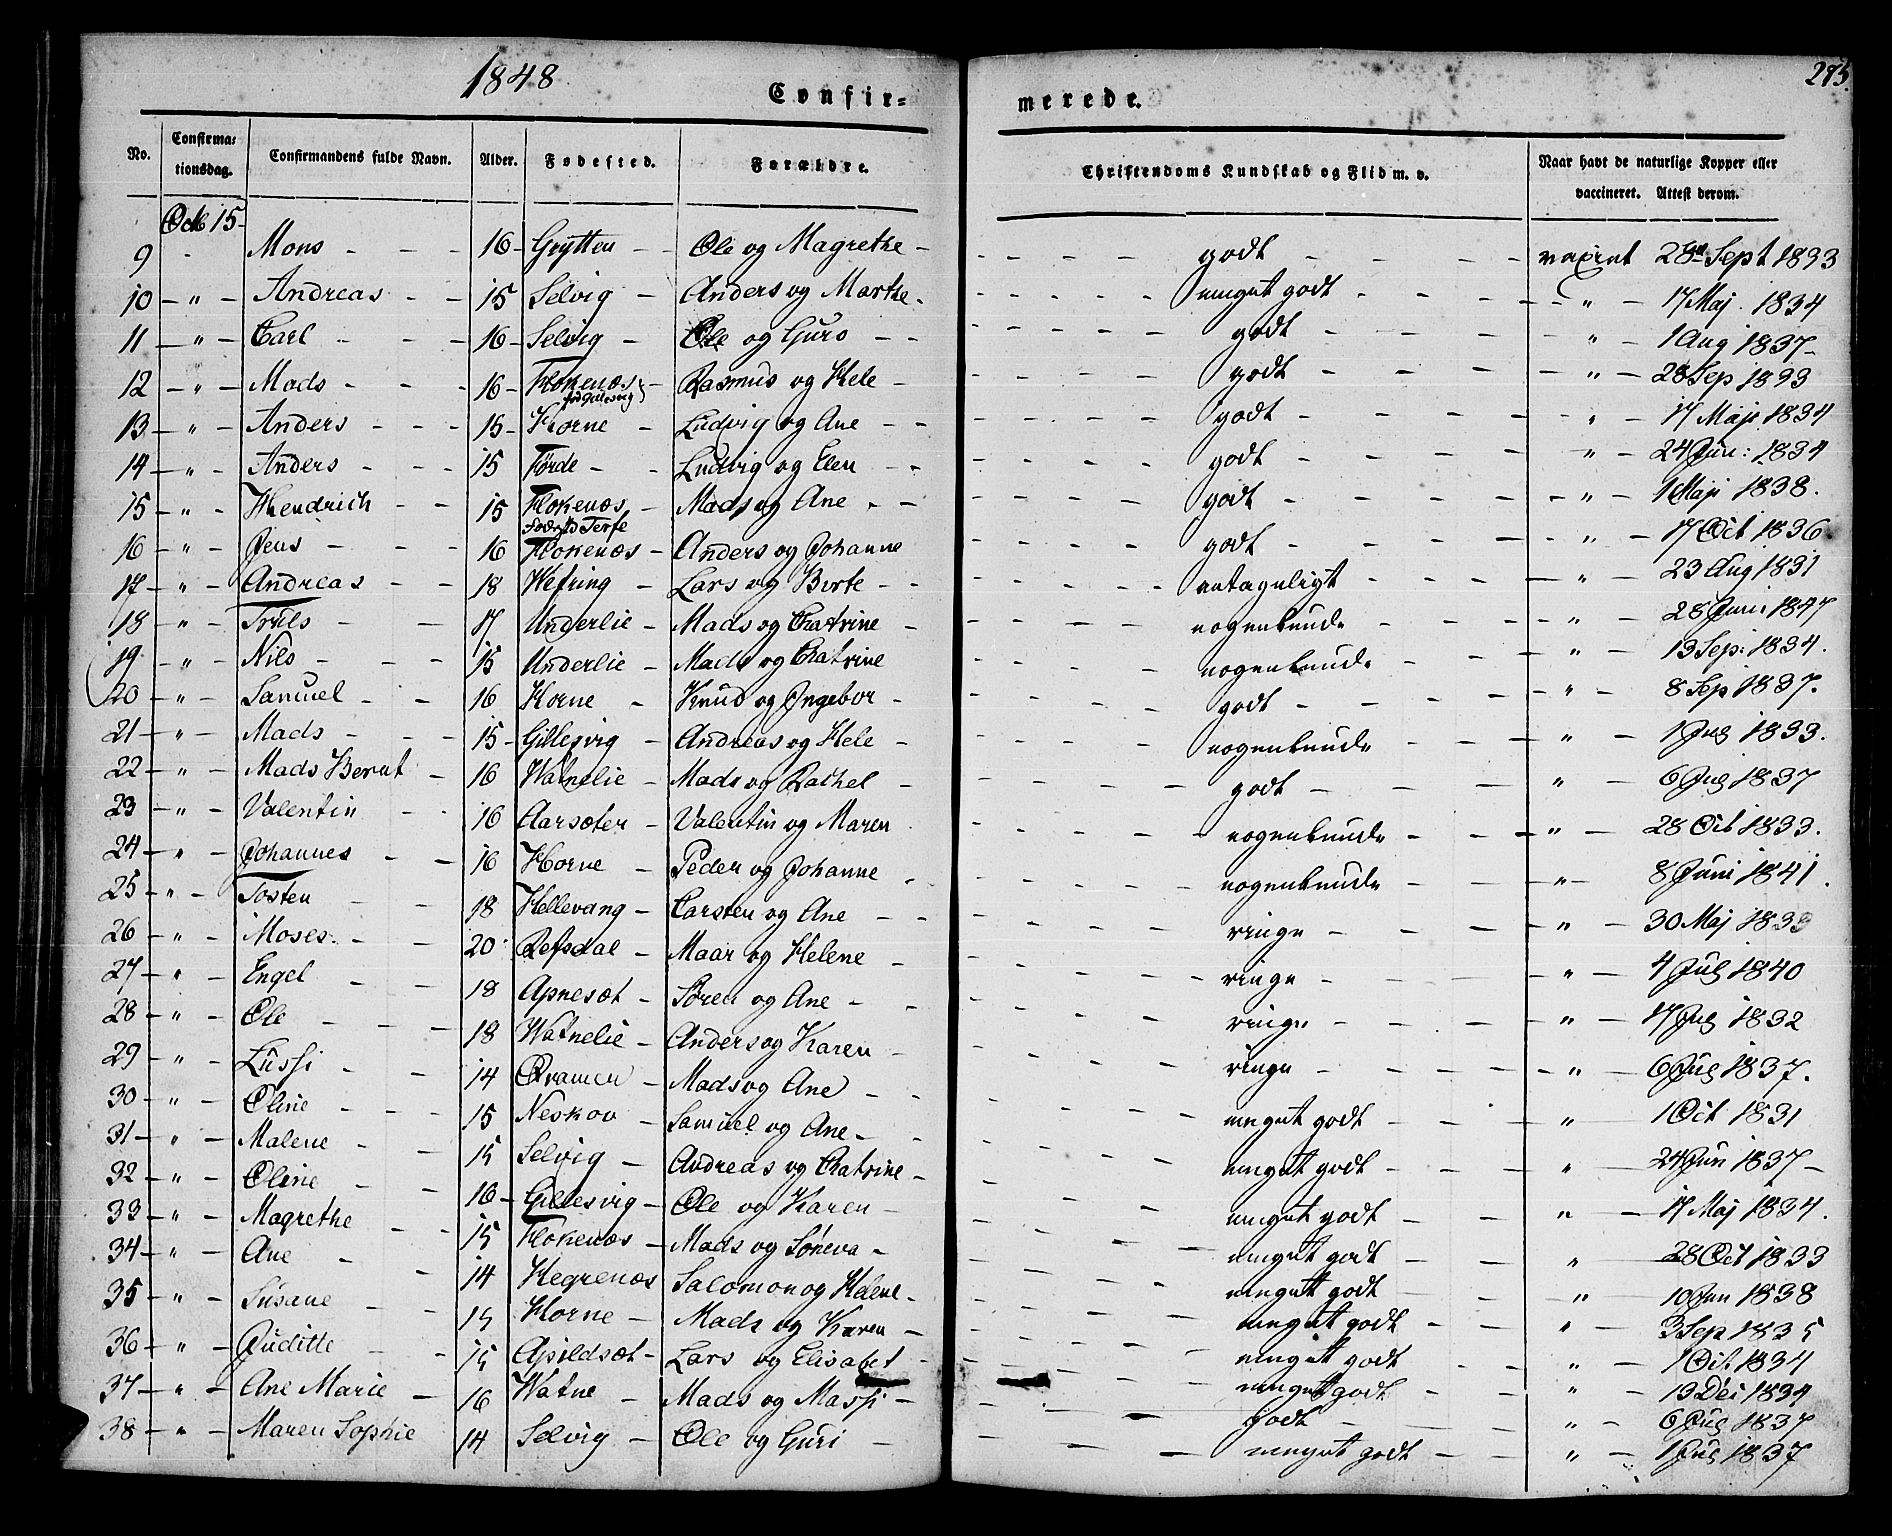 1848
Confir-
merede.
275.
No.
Confirma-
tionsdag.
Confirmandens fulde Navn.
Alder.
Fødested.
Forældre.
Christendoms Kundskab og Flid m. v.
Naar havt de naturlige Kopper eller
vaccineret. Attest derom.
Octb 15
9 Mons - - - 16 - Grytten - - Ole og Magrethe - godt vaxinet 28de Sept 1833
10 - " - Andreas - - 15 Selvig - Anders og Marthe - meget godt - " - 17 Maj 1834
11 - " - Carl - - 16 - Selvig - Ole og Guro - - godt " - 1 Aug 1837 -
12 - " - Mads - - 16 - Flokenæs - Rasmus og Hele - godt - " - 28 Sep 1833
fød Gillesvig
13 - " - Anders - - - 15 - Horne - Ludvig og Ane - - godt " - 17 Maji 1834
14 - " - Anders - - - 15 Førde - - Ludvig og Elen - - godt " - 24 Juni: 1834
15 - " - Hendrich - - 15 Flokenæs - Mads og Ane - - godt - " - 1 Maji 1838.
Terfe
16 - " - Jens - - 16 Flokenæs - Anders og Johanne godt - " - 17 Oct 1836
17 - " - Andreas - - 18 Wefring - Lars og Birte - - antageligt - " - 23 Aug 1831
18 - " - Truls - - 17 Underlie - Mads og Chatrine - nogenlunde - " - 28 Juni 1847
19 - " - Nils - - - 15 Underlie - Mads og Chatrine nogenlunde - " - 13 Sep: 1834.
20 " - Samuel - - 16 Horne - Knud og Ingebor - godt - " - 8 Sep 1837.
21 - " - Mads - - - 15 - Gillesvig - Andreas og Hele - nogenlunde - " - 1 Jul 1833.
22 - " - Mads Bernt - 16 Watnelie - Mads og Rachel - godt " - 6 Jul 1837
23 - " - Valentin - - 16 Aarsæter - Valentin og Maren nogenlunde - " - 28 Oct 1833.
24 - " - Johannes - - 16 Horne - Peder og Johanne - nogenlunde - " - 8 Juni 1841.
25 - " - Tosten - - 18 Hellevang - Carsten og Ane - - ringe - " - 30 Maj 1833
26 - " - Moses - - 20 Refsdal - Maar og Helene - ringe - " - 4 Jul 1840
27 - " - Engel - - 18 Apnesæt - Søren og Ane - - ringe - " - 17 Jul 1832
28 - " - Ole - - - 18 Watnelie - Anders og Karen - ringe - " - 6 Jul 1837.
29 - " - Lussi - - 14 Qvamen - Mads og Ane - - meget godt " - 1 Oct 1831
30 - " - Oline - - - 15 Neskov - Samuel og Ane - meget godt - " - 24 Jun 1837 -
31 - " - Malene - 15 Selvig - Andreas og Chatrine - meget godt - " - 17 Maj 1834.
32 - " - Oline - - 16 - Gillesvig - Ole og Karen - meget godt - " - 28 Oct 1833
33 - " - Magrethe - - 15 Flokenæs - Mads og Søneva - meget godt - " - 10 Jun 1838
34 - " - Ane - - 14 Hegrenæs Salomon og Helene - meget godt - " - 3 Sep 1835
35 - " - Susane - - 15 Horne - Mads og Karen - meget godt - " - 1 Oct 1834
36 - " - Juditte - - 15 Apildsæt - Lars og Elisabet - meget godt - " - 13 Dec 1834
37 - " - Ane Marie - 16 Watne - Mads og Massi - godt - " - 6 Jul 1837
38 - " - Maren Sophie 14 Selvig - Ole og Guri - meget godt - " - 1 Jul 1837